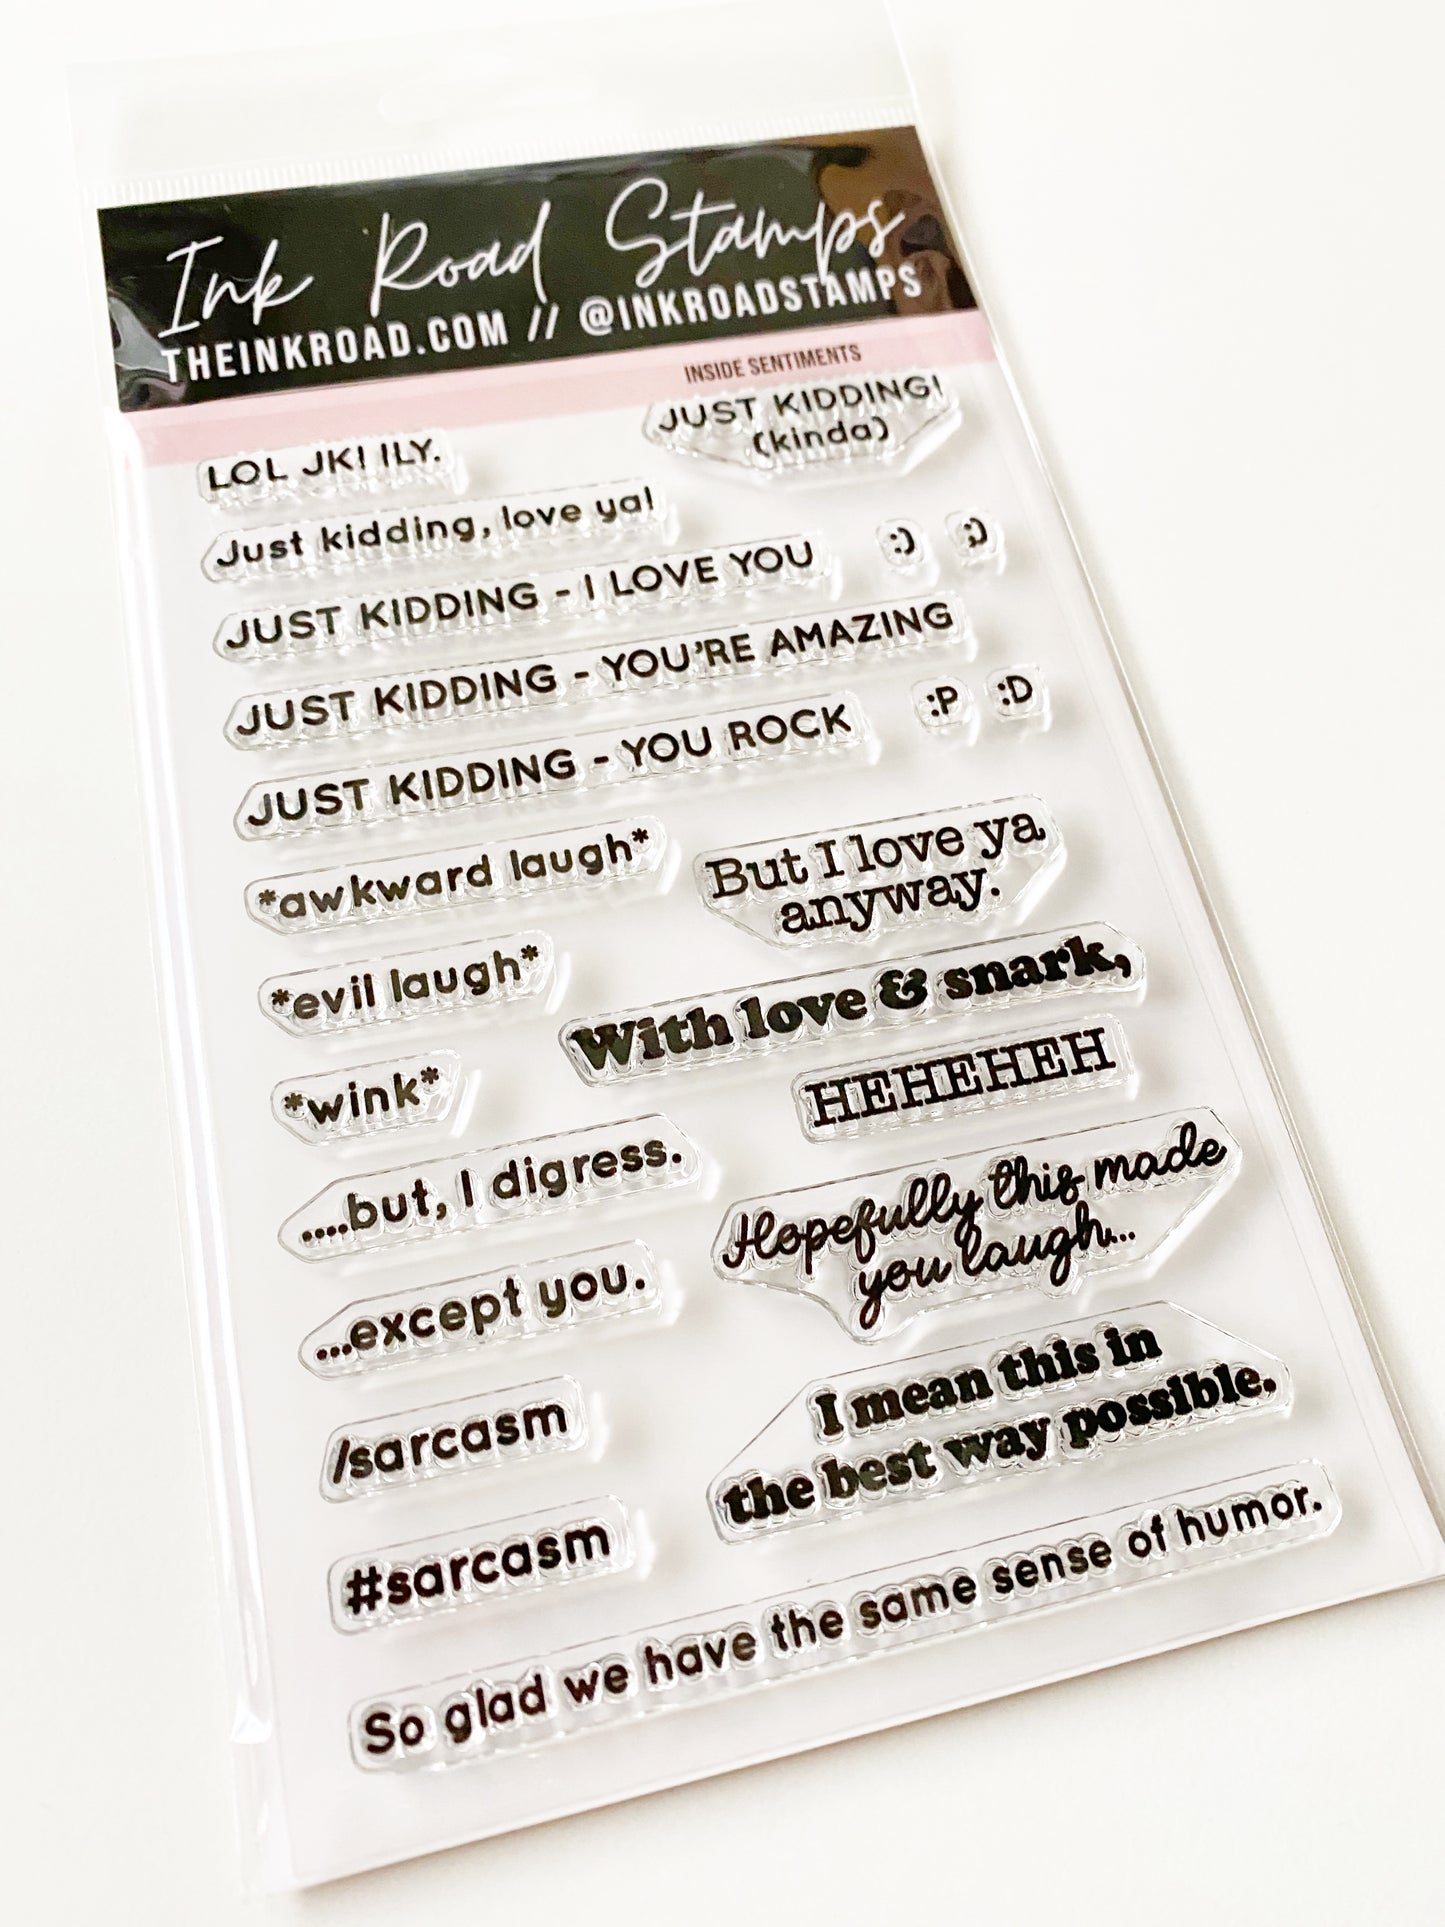 Ink Road Stamps
THEINKROAD.COM // @INKROADSTAMPS
INSIDE SENTIMENTS
JUST KIDDING!
(kinda)
LOL JK! ILY.
Just kidding, love ya!
JUST KIDDING - I LOVE YOU
:)
;)
JUST KIDDING - YOU'RE AMAZING
JUST KIDDING - YOU ROCK
:P
:D
*awkward laugh*
But I love ya
anyway.
*evil laugh*
With love & snark,
*wink*
HEHEHEH
....but, I digress.
Hopefully this made
you laugh...
...except you.
I mean this in
the best way possible.
/sarcasm
#sarcasm
So glad we have the same sense of humor.